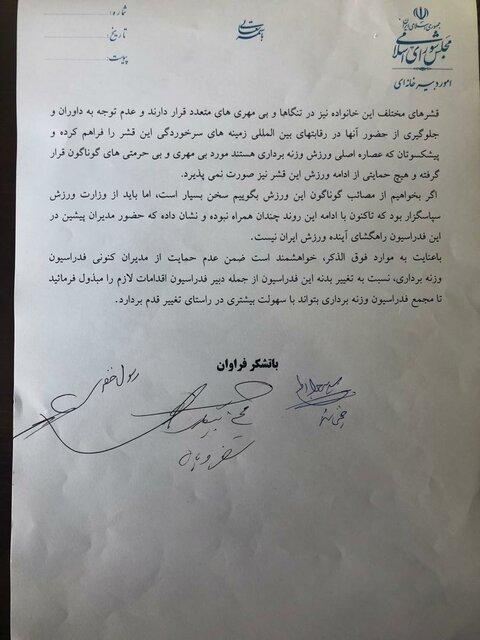 جمهوری اسلامی ایران
مجلس شورای اسلامی
امور دبیرخانه‌ای
باسمه تعالی
شماره:
تاریخ:
پیوست:
قشرهای مختلف این خانواده نیز در تنگاها و بی مهری های متعدد قرار دارند و عدم توجه به داوران و
جلوگیری از حضور آنها در رقابتهای بین المللی زمینه های سرخوردگی این قشر را فراهم کرده و
پیشکسوتان که عصاره اصلی ورزش وزنه برداری هستند مورد بی مهری و بی حرمتی های گوناگون قرار
گرفته و هیچ حمایتی از ادامه ورزش این قشر نیز صورت نمی پذیرد.
اگر بخواهیم از مصائب گوناگون این ورزش بگوییم سخن بسیار است، اما باید از وزارت ورزش
سپاسگزار بود که تاکنون با ادامه این روند چندان همراه نبوده و نشان داده که حضور مدیران پیشین در
این فدراسیون راهگشای آینده ورزش ایران نیست.
باعنایت به موارد فوق الذکر، خواهشمند است ضمن عدم حمایت از مدیران کنونی فدراسیون
وزنه برداری، نسبت به تغییر بدنه این فدراسیون از جمله دبیر فدراسیون اقدامات لازم را مبذول فرمائید
تا مجمع فدراسیون وزنه برداری بتواند با سهولت بیشتری در راستای تغییر قدم بردارد.
باتشکر فراوان
رسول خضری